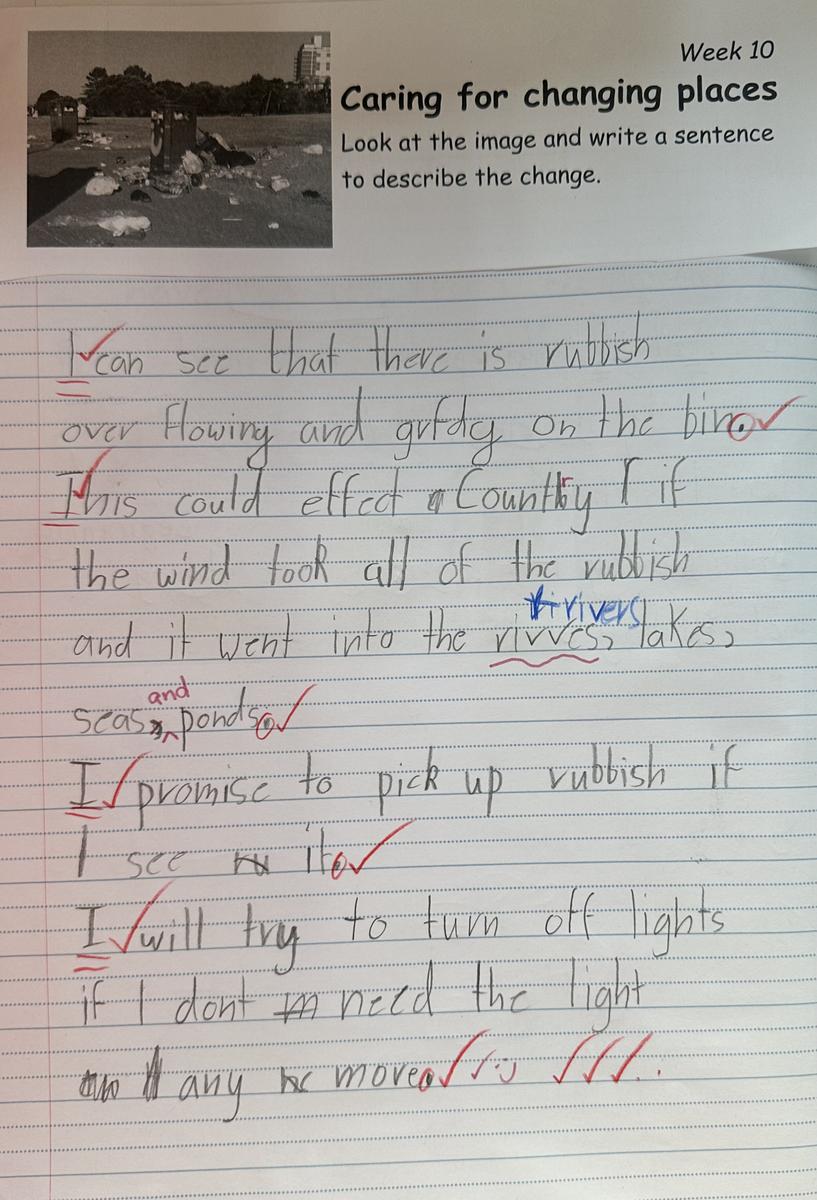 Week 10
Caring for changing places
Look at the image and write a sentence
to describe the change.
I can see that there is rubbish
over flowing and grfdg on the bin.
This could effect Country if
the wind took all of the rubbish
rivers
and it went into the rivves, lakes,
and
seas, ponds.
I promise to pick up rubbish if
I see it.
I will try to turn off lights
if I dont need the light
any more.